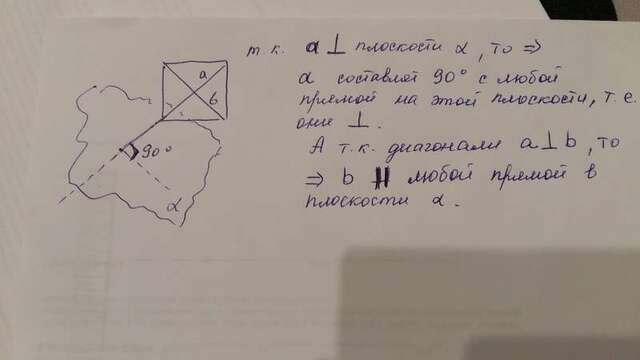 т.к. a ⊥ плоскости α, то ⇒
α составляет 90° с любой
прямой на этой плоскости, т.е.
они ⊥.
А т.к. диагонали a ⊥ b, то
⇒ b ∥ любой прямой в
плоскости α.
a
b
90°
α